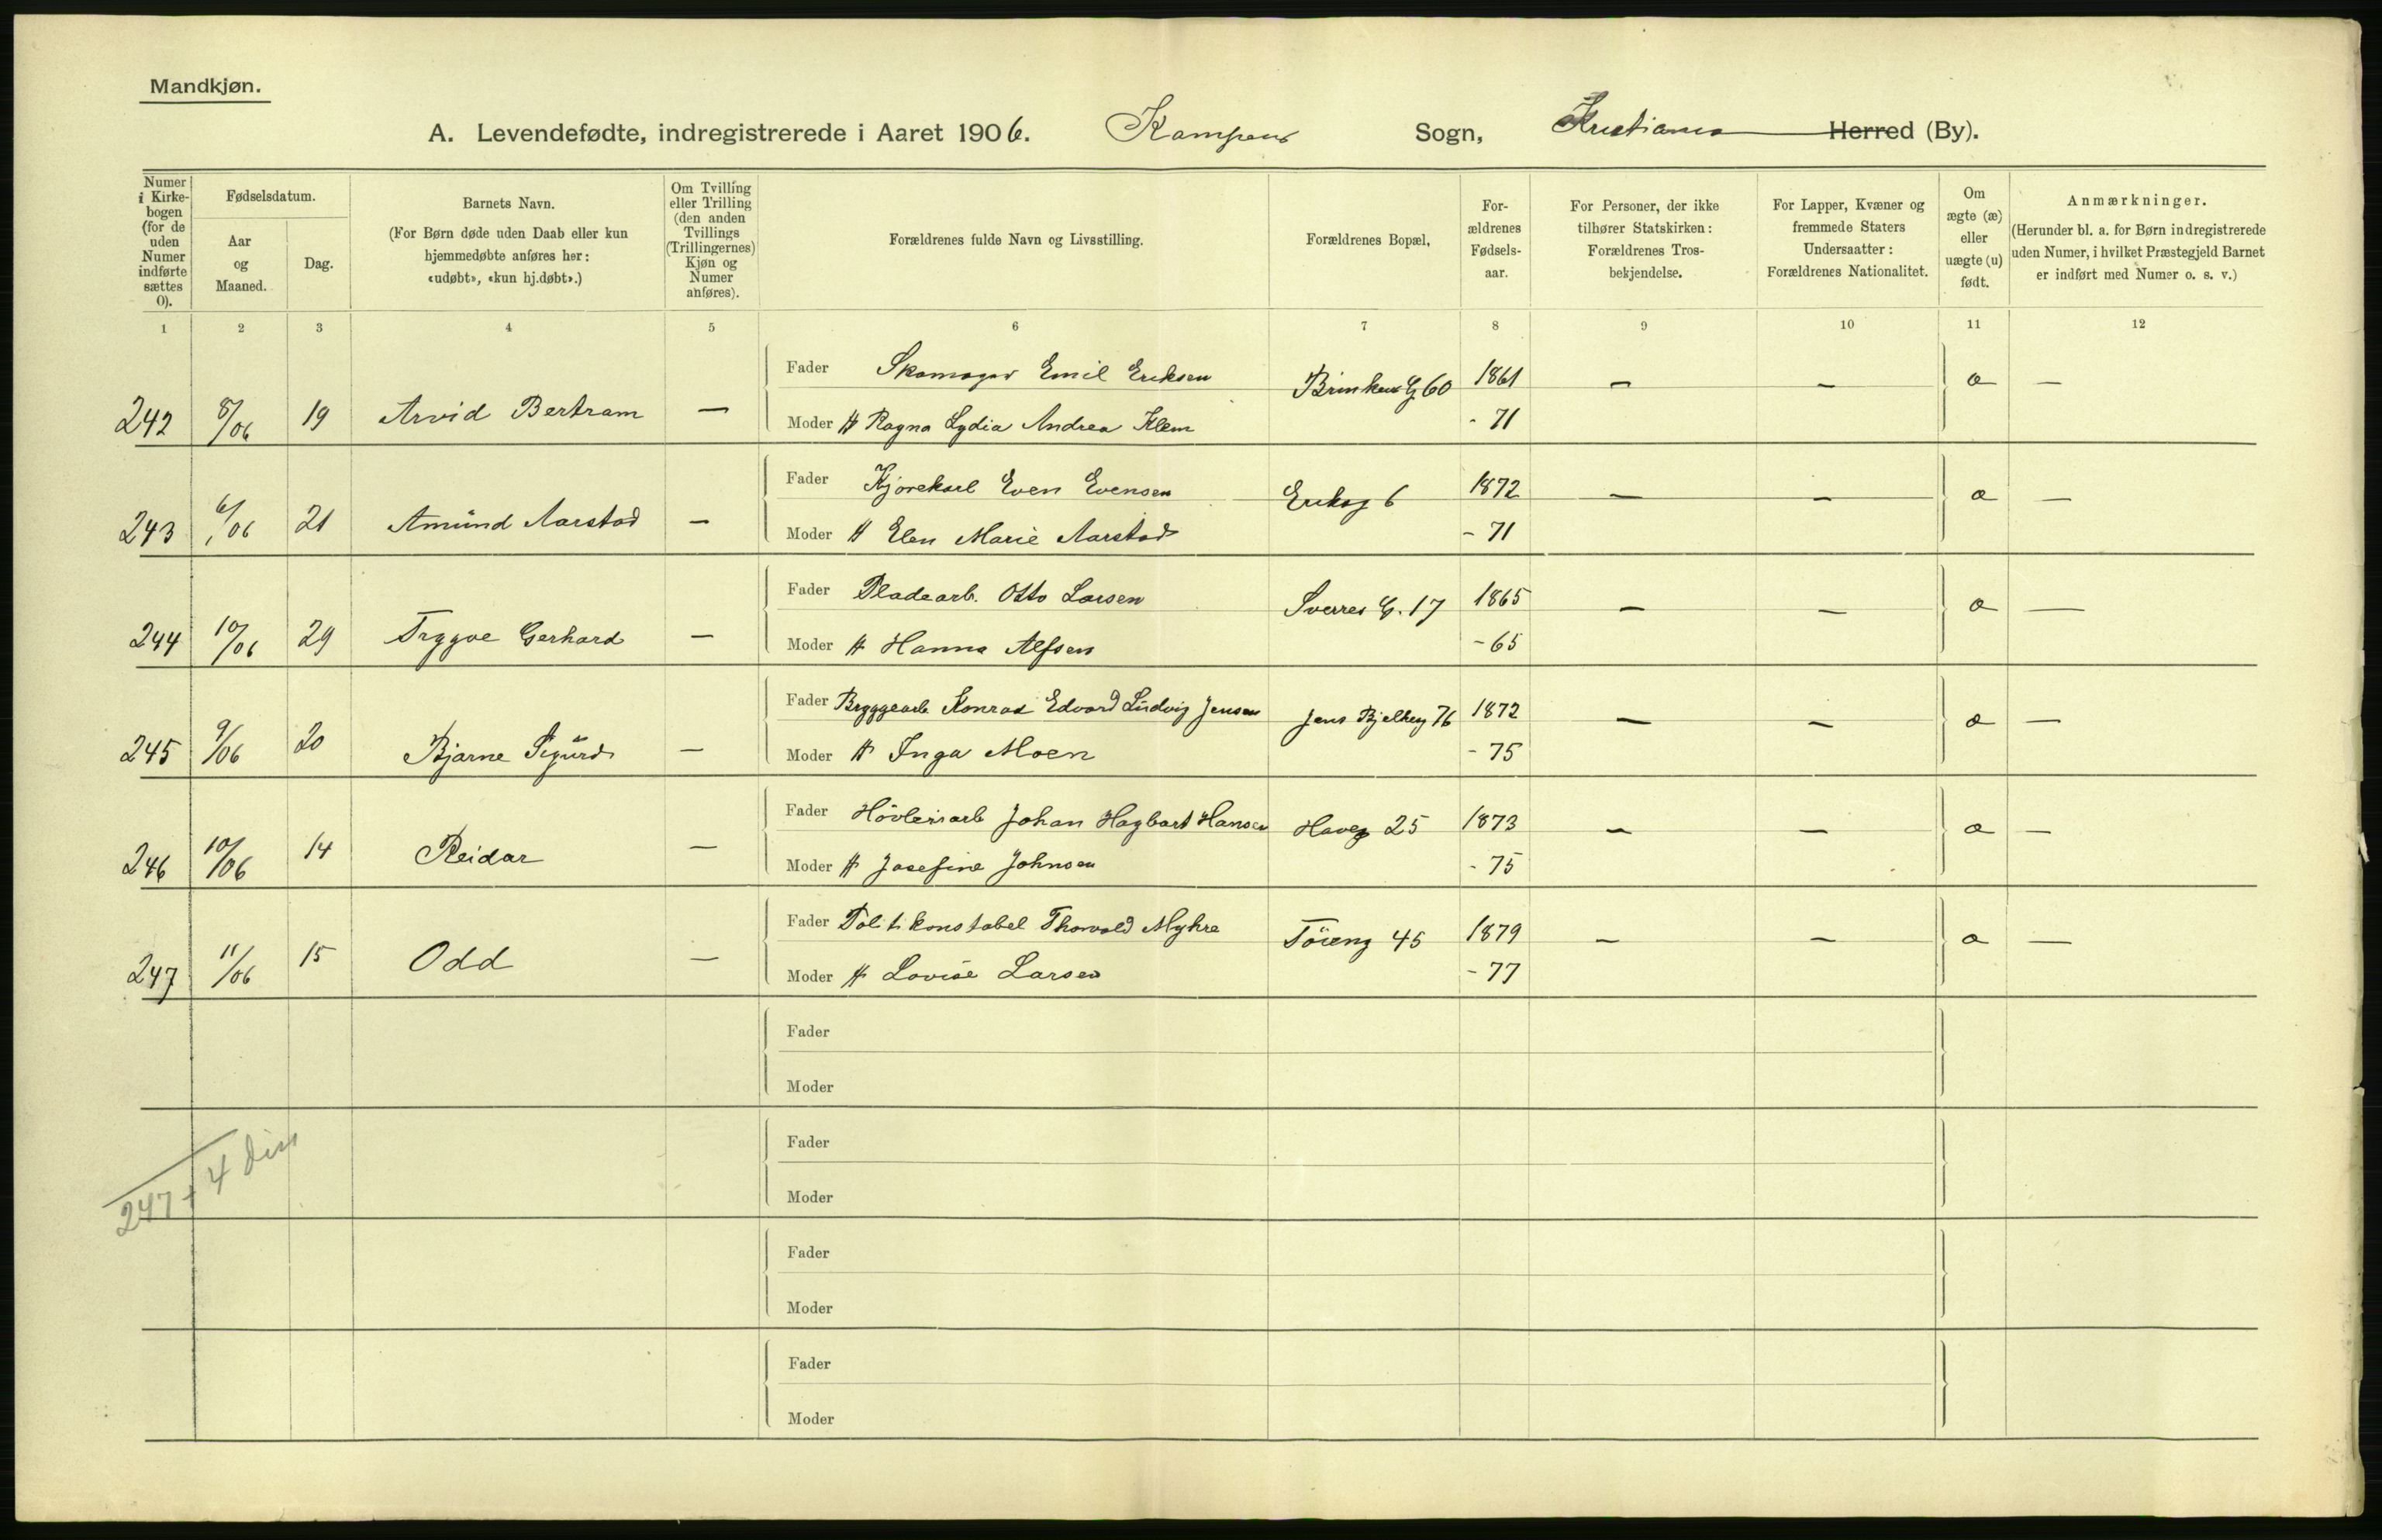 Mandkjøn.
A. Levendefødte, indregistrerede i Aaret 1906. Kampens Sogn, Kristiania Herred (By).
Numer i Kirke- bogen (for de uden Numer indførte sættes 0).
Fødselsdatum.
Aar og Maaned.
Dag.
Barnets Navn.
(For Børn døde uden Daab eller kun
hjemmedøbte anføres her:
«udøbt», «kun hj.døbt».)
Om Tvilling
eller Trilling
(den anden
Tvillings
(Trillingernes)
Kjøn og
Numer
anføres).
Forældrenes fulde Navn og Livsstilling.
Forældrenes Bopæl,
For-
ældrenes
Fødsels-
aar.
For Personer, der ikke
tilhører Statskirken:
Forældrenes Tros-
bekjendelse.
For Lapper, Kvæner og
fremmede Staters
Undersaatter:
Forældrenes Nationalitet.
Om
ægte (æ)
eller
uægte (u)
født.
Anmærkninger.
(Herunder bl. a. for Børn indregistrerede
uden Numer, i hvilket Præstegjeld Barnet
er indført med Numer o. s. v.)
1 2 3 4 5 6 7 8 9 10 11 12
Fader Skomager Emil Eriksen Brinkens G 60 1861 – – æ –
242 8/06 19 Arvid Bertram – Moder H Ragna Lydia Andrea Klem - 71
Fader Kjørekarl Even Evensen Eriksg 6 1872 – – æ –
243 6/06 21 Amund Aarstad – Moder H Elen Marie Aarstad - 71
Fader Pladearb. Otto Larsen Sverres G. 17 1865 – – æ –
244 10/06 29 Trygve Gerhard – Moder H Hanna Alfsen - 65
Fader Bryggearb Konrad Edvard Ludvig Jensen Jens Bjelkeg 76 1872 – – æ –
245 9/06 20 Bjarne Sigurd – Moder H Inga Moen - 75
Fader Høvleriarb Johan Hagbart Hansen Haveg 25 1873 – – æ –
246 10/06 14 Reidar – Moder H Josefine Johnsen - 75
Fader Politikonstabel Thorvald Myhre Tøieng 45 1879 – – æ –
247 11/06 15 Odd – Moder H Lovise Larsen - 77
Fader
Moder
Fader
247 + 4 diss
Moder
Fader
Moder
Fader
Moder